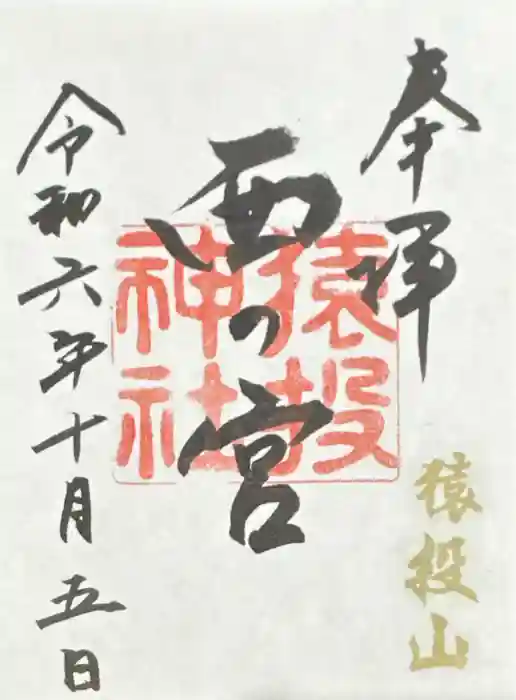 奉拝
猿投山
西の宮
猿投
神社
令和六年十月五日